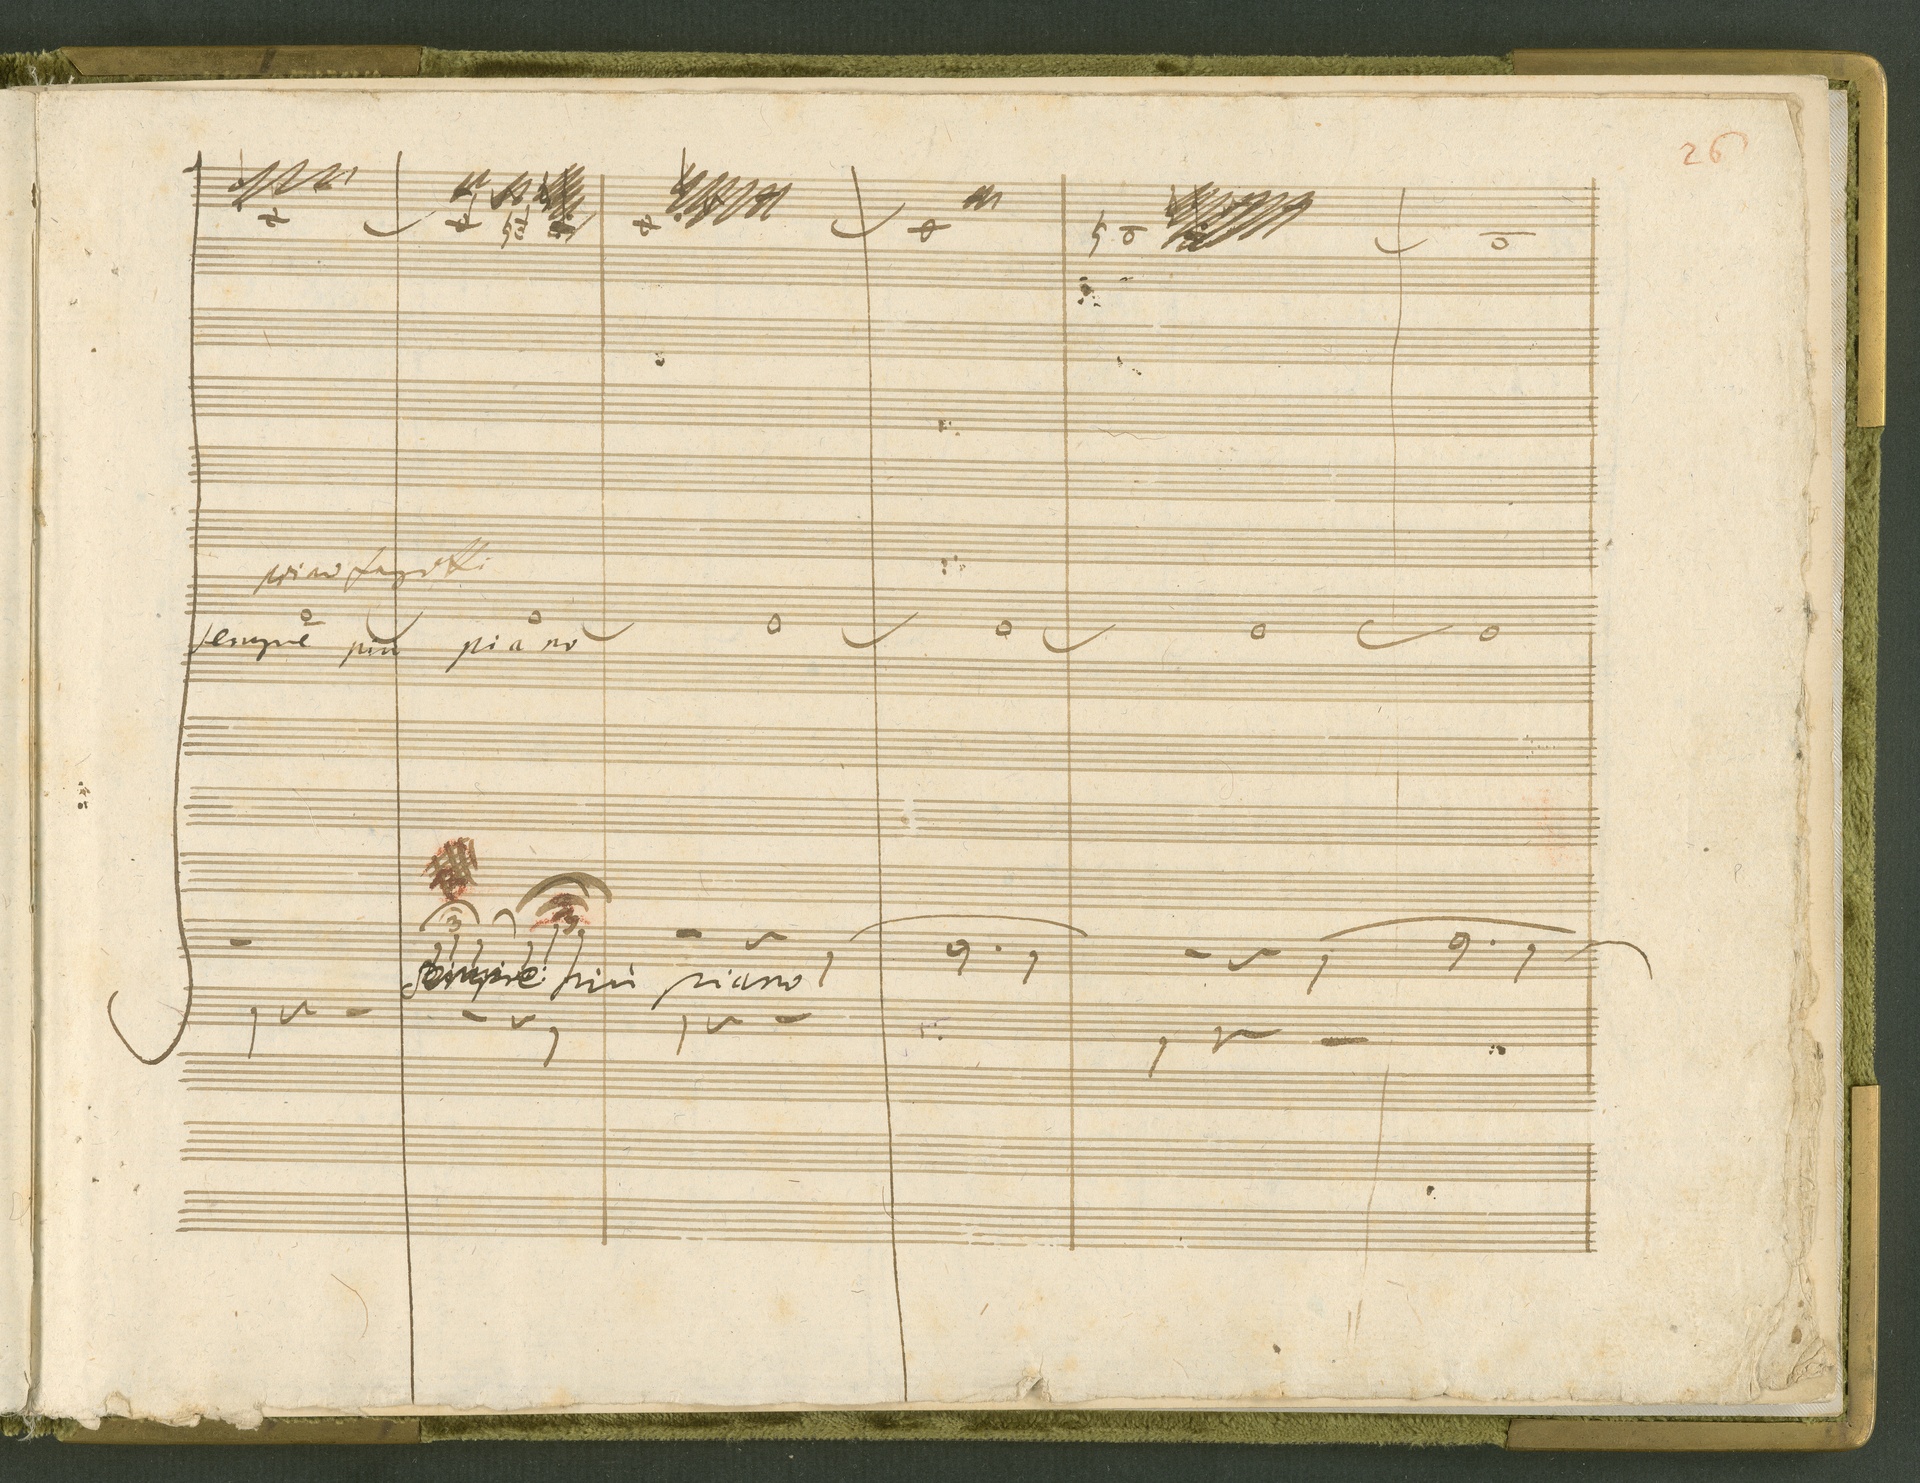 26
fagotti
sempre più piano
3 3
sempre più piano